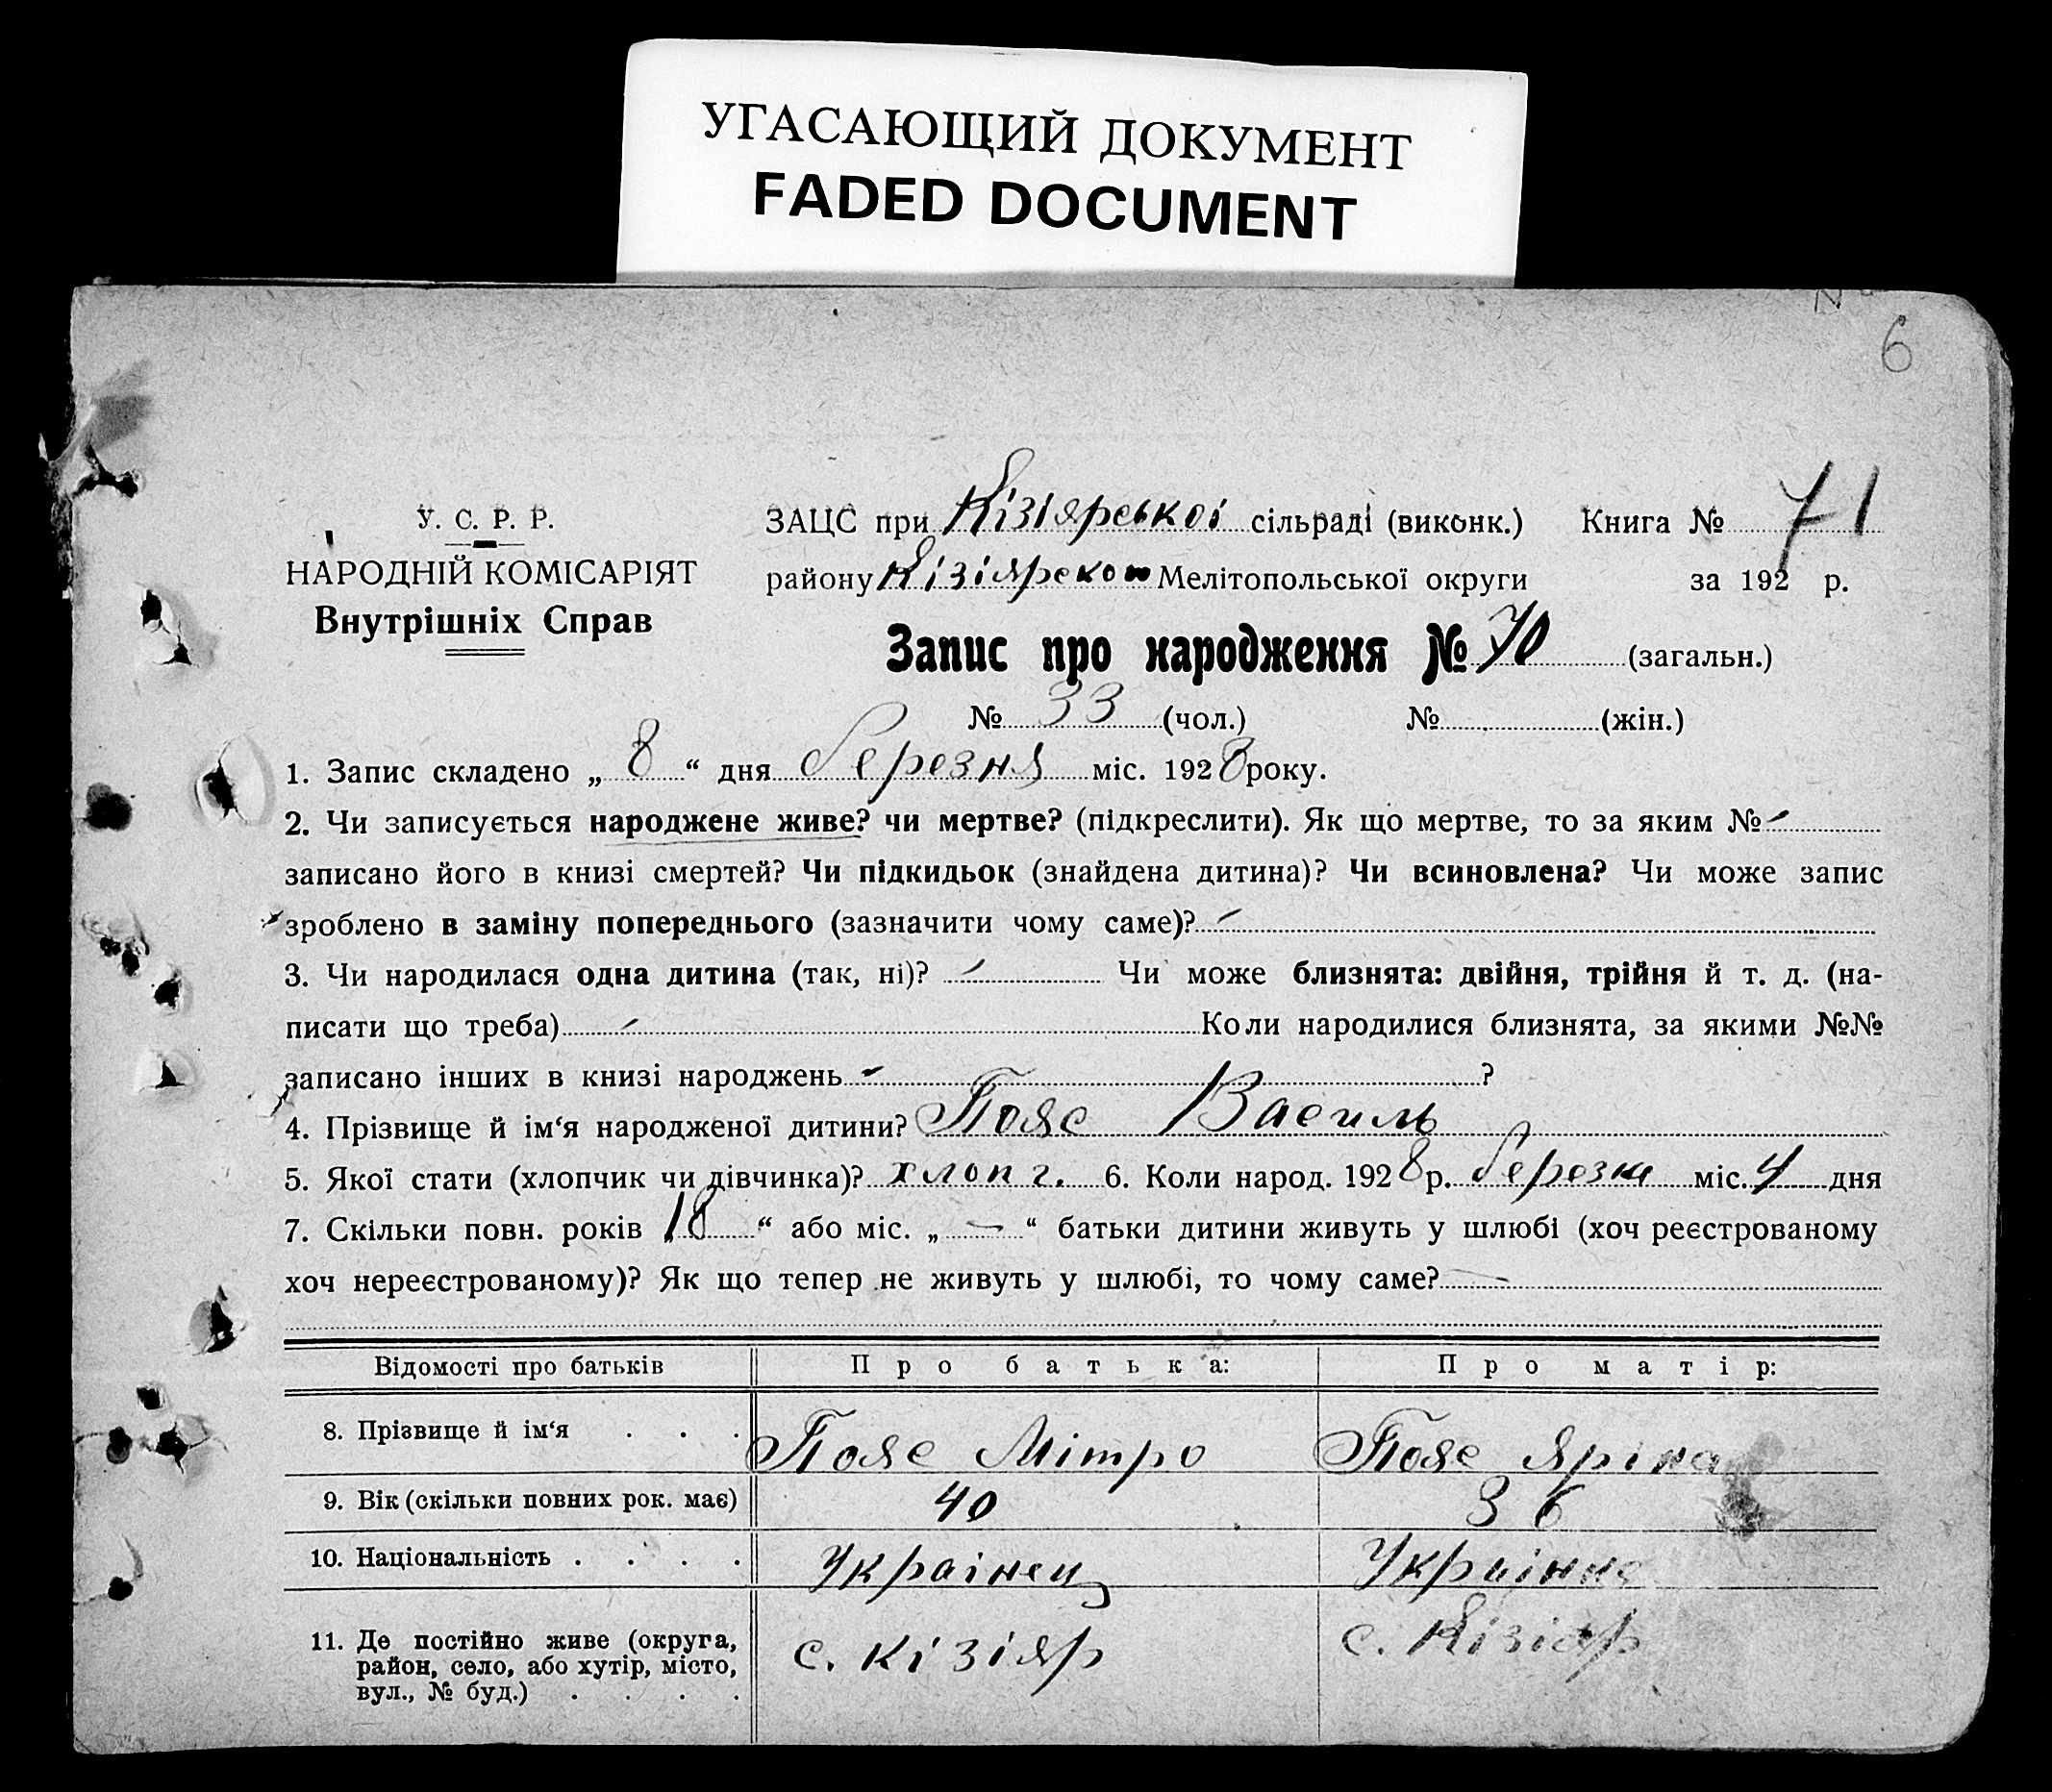 УГАСАЮЩИЙ ДОКУМЕНТ
FADED DOCUMENT
6
У. С. Р. Р.
НАРОДНІЙ КОМІСАРІЯТ
Внутрішніх Справ
ЗАЦС при Кізіярської сільраді (виконк.) Книга № 71
району Кізіярською Мелітопольської округи за 192 р.
Запис про народження № 70 (загальн.)
№ 33 (чол.) № (жін.)
1. Запис складено „ 8 “ дня березня міс. 1928 року.
2. Чи записується народжене живе? чи мертве? (підкреслити). Як що мертве, то за яким № -
записано його в книзі смертей? Чи підкидьок (знайдена дитина)? Чи всиновлена? Чи може запис
зроблено в заміну попереднього (зазначити чому саме)? -
3. Чи народилася одна дитина (так, ні)? - Чи може близнята: двійня, трійня й т. д. (на-
писати що треба) - Коли народилися близнята, за якими №№
записано інших в книзі народжень - ?
4. Прізвище й ім‘я народженої дитини? Пояс Василь
5. Якої стати (хлопчик чи дівчинка)? хлопч. 6. Коли народ. 1928 р. березня міс. 4 дня
7. Скільки повн. років „ 18 “ або міс. „ - “ батьки дитини живуть у шлюбі (хоч реєстрованому
хоч нереєстрованому)? Як що тепер не живуть у шлюбі, то чому саме? -
Відомості про батьків Про батька: Про матір:
8. Прізвище й ім‘я . . . Пояс Мітро Пояс Яріна
9. Вік (скільки повних рок. має) 40 36
10. Національність . . . . Украінец Украінка
11. Де постійно живе (округа,
район, село, або хутір, місто,
вул., № буд.) . . . .
с. Кізіяр с. Кізіяр